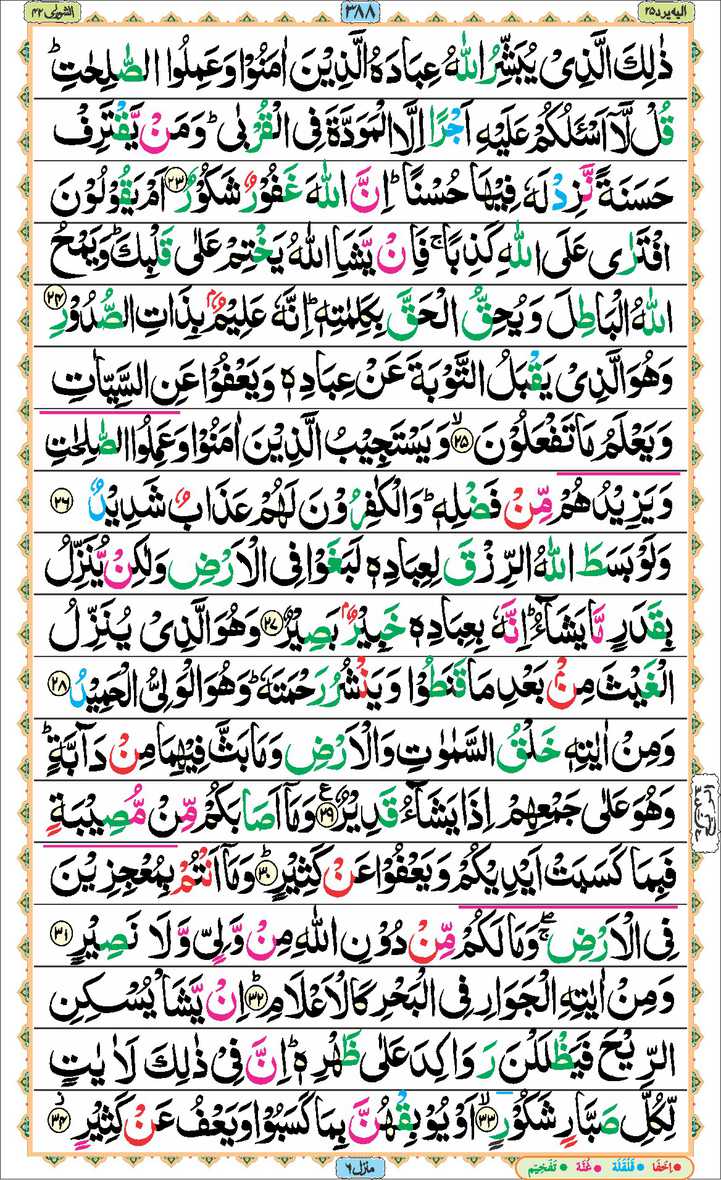 الیه یرد ۲۵
۳۸۸
الشورٰی ۴۲
ذٰلِكَ الَّذِیْ یُبَشِّرُ اللّٰهُ عِبَادَهُ الَّذِیْنَ اٰمَنُوْا وَعَمِلُوا الصّٰلِحٰتِ ؕ
قُلْ لَّاۤ اَسْـَٔلُكُمْ عَلَیْهِ اَجْرًا اِلَّا الْمَوَدَّةَ فِی الْقُرْبٰی ؕ وَمَنْ یَّقْتَرِفْ
حَسَنَةً نَّزِدْ لَهٗ فِیْهَا حُسْنًا ؕ اِنَّ اللّٰهَ غَفُوْرٌ شَكُوْرٌ ۲۳ اَمْ یَقُوْلُوْنَ
افْتَرٰی عَلَی اللّٰهِ كَذِبًا ۚ فَاِنْ یَّشَاِ اللّٰهُ یَخْتِمْ عَلٰی قَلْبِكَ ؕ وَیَمْحُ
اللّٰهُ الْبَاطِلَ وَیُحِقُّ الْحَقَّ بِكَلِمٰتِهٖ ؕ اِنَّهٗ عَلِیْمٌۢ بِذَاتِ الصُّدُوْرِ ۲۴
وَهُوَ الَّذِیْ یَقْبَلُ التَّوْبَةَ عَنْ عِبَادِهٖ وَیَعْفُوْا عَنِ السَّیِّاٰتِ
وَیَعْلَمُ مَا تَفْعَلُوْنَ ۙ۲۵ وَیَسْتَجِیْبُ الَّذِیْنَ اٰمَنُوْا وَعَمِلُوا الصّٰلِحٰتِ
وَیَزِیْدُهُمْ مِّنْ فَضْلِهٖ ؕ وَالْكٰفِرُوْنَ لَهُمْ عَذَابٌ شَدِیْدٌ ۲۶
وَلَوْ بَسَطَ اللّٰهُ الرِّزْقَ لِعِبَادِهٖ لَبَغَوْا فِی الْاَرْضِ وَلٰكِنْ یُّنَزِّلُ
بِقَدَرٍ مَّا یَشَآءُ ؕ اِنَّهٗ بِعِبَادِهٖ خَبِیْرٌۢ بَصِیْرٌ ۲۷ وَهُوَ الَّذِیْ یُنَزِّلُ
الْغَیْثَ مِنْۢ بَعْدِ مَا قَنَطُوْا وَیَنْشُرُ رَحْمَتَهٗ ؕ وَهُوَ الْوَلِیُّ الْحَمِیْدُ ۲۸
وَمِنْ اٰیٰتِهٖ خَلْقُ السَّمٰوٰتِ وَالْاَرْضِ وَمَا بَثَّ فِیْهِمَا مِنْ دَآبَّةٍ ؕ
وَهُوَ عَلٰی جَمْعِهِمْ اِذَا یَشَآءُ قَدِیْرٌ ۲۹ وَمَاۤ اَصَابَكُمْ مِّنْ مُّصِیْبَةٍ
فَبِمَا كَسَبَتْ اَیْدِیْكُمْ وَیَعْفُوْا عَنْ كَثِیْرٍ ؕ۳۰ وَمَاۤ اَنْتُمْ بِمُعْجِزِیْنَ
فِی الْاَرْضِ ۚۖ وَمَا لَكُمْ مِّنْ دُوْنِ اللّٰهِ مِنْ وَّلِیٍّ وَّلَا نَصِیْرٍ ۳۱
وَمِنْ اٰیٰتِهِ الْجَوَارِ فِی الْبَحْرِ كَالْاَعْلَامِ ؕ۳۲ اِنْ یَّشَاْ یُسْكِنِ
الرِّیْحَ فَیَظْلَلْنَ رَوَاكِدَ عَلٰی ظَهْرِهٖ ؕ اِنَّ فِیْ ذٰلِكَ لَاٰیٰتٍ
لِّكُلِّ صَبَّارٍ شَكُوْرٍ ۙ۳۳ اَوْ یُوْبِقْهُنَّ بِمَا كَسَبُوْا وَیَعْفُ عَنْ كَثِیْرٍ ۳۴
منزل ۶
اِخفَا قَلقَلَة غُنَّه تَفخِیم